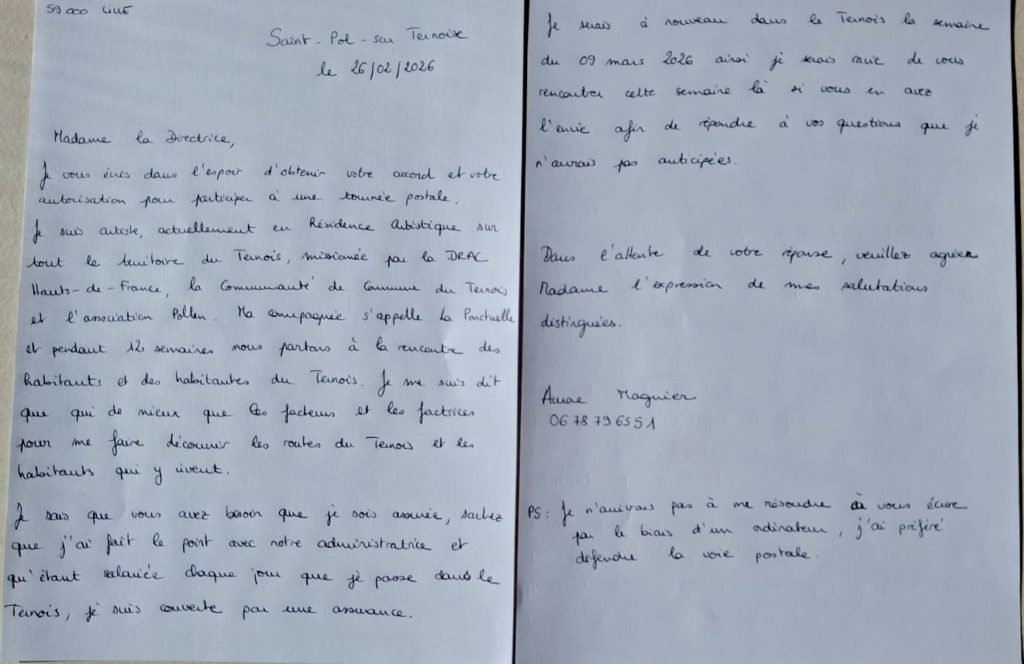 59000 LILLE
Saint-Pol-sur Ternoise
le 26/02/2026
Madame la Directrice,
Je vous écris dans l'espoir d'obtenir votre accord et votre
autorisation pour participer à une tournée postale.
Je suis artiste, actuellement en Résidence Artistique sur
tout le territoire du Ternois, missionnée par la DRAC
Hauts-de-France, la Communauté de Commune du Ternois
et l'association Pollen. Ma compagnie s'appelle La Ponctuelle
et pendant 12 semaines nous partons à la rencontre des
habitants et des habitantes du Ternois. Je me suis dit
que qui de mieux que les facteurs et les factrices
pour me faire découvrir les routes du Ternois et les
habitants qui y vivent.
Je sais que vous avez besoin que je sois assurée, sachez
que j'ai fait le point avec notre administratrice et
qu'étant salariée chaque jour que je passe dans le
Ternois, je suis couverte par une assurance.
Je serais à nouveau dans le Ternois la semaine
du 09 mars 2026 ainsi je serais ravie de vous
rencontrer cette semaine là si vous en avez
l'envie afin de répondre à vos questions que je
n'aurais pas anticipées.
Dans l'attente de votre réponse, veuillez agréer
Madame l'expression de mes salutations
distinguées.
Magnier
06 78 79 65 51
PS: Je n'arrivais pas à me résoudre à vous écrire
par le biais d'un ordinateur, j'ai préféré
défendre la voie postale.